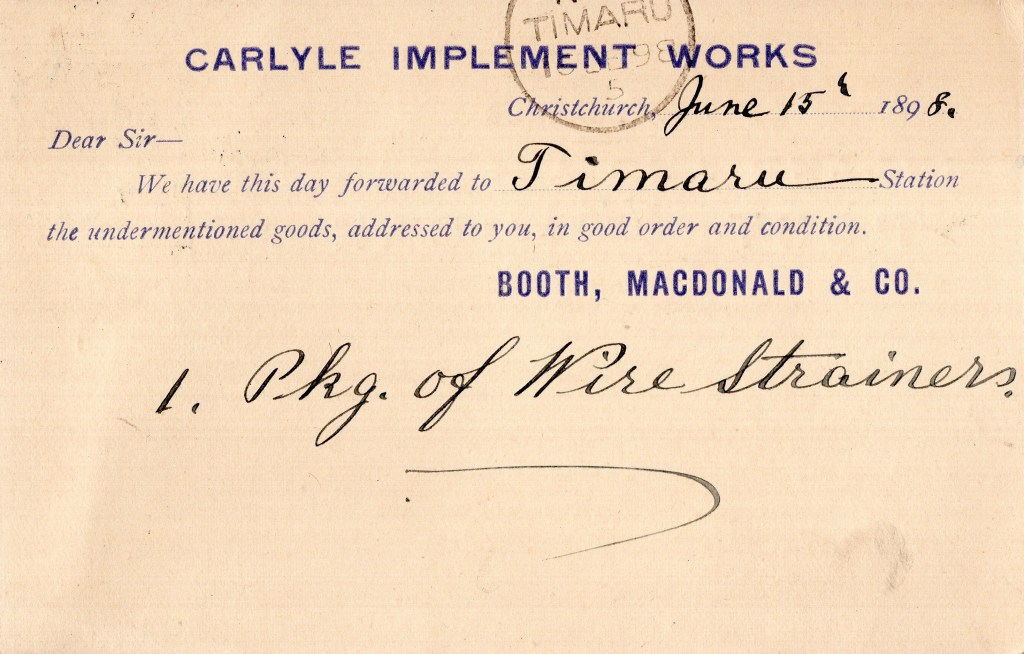 TIMARU
CARLYLE IMPLEMENT WORKS
98
5
Christchurch, June 15th 1898.
Dear Sir—
We have this day forwarded to Timaru Station
the undermentioned goods, addressed to you, in good order and condition.
BOOTH, MACDONALD & CO.
1. Pkg. of Wire Strainers.